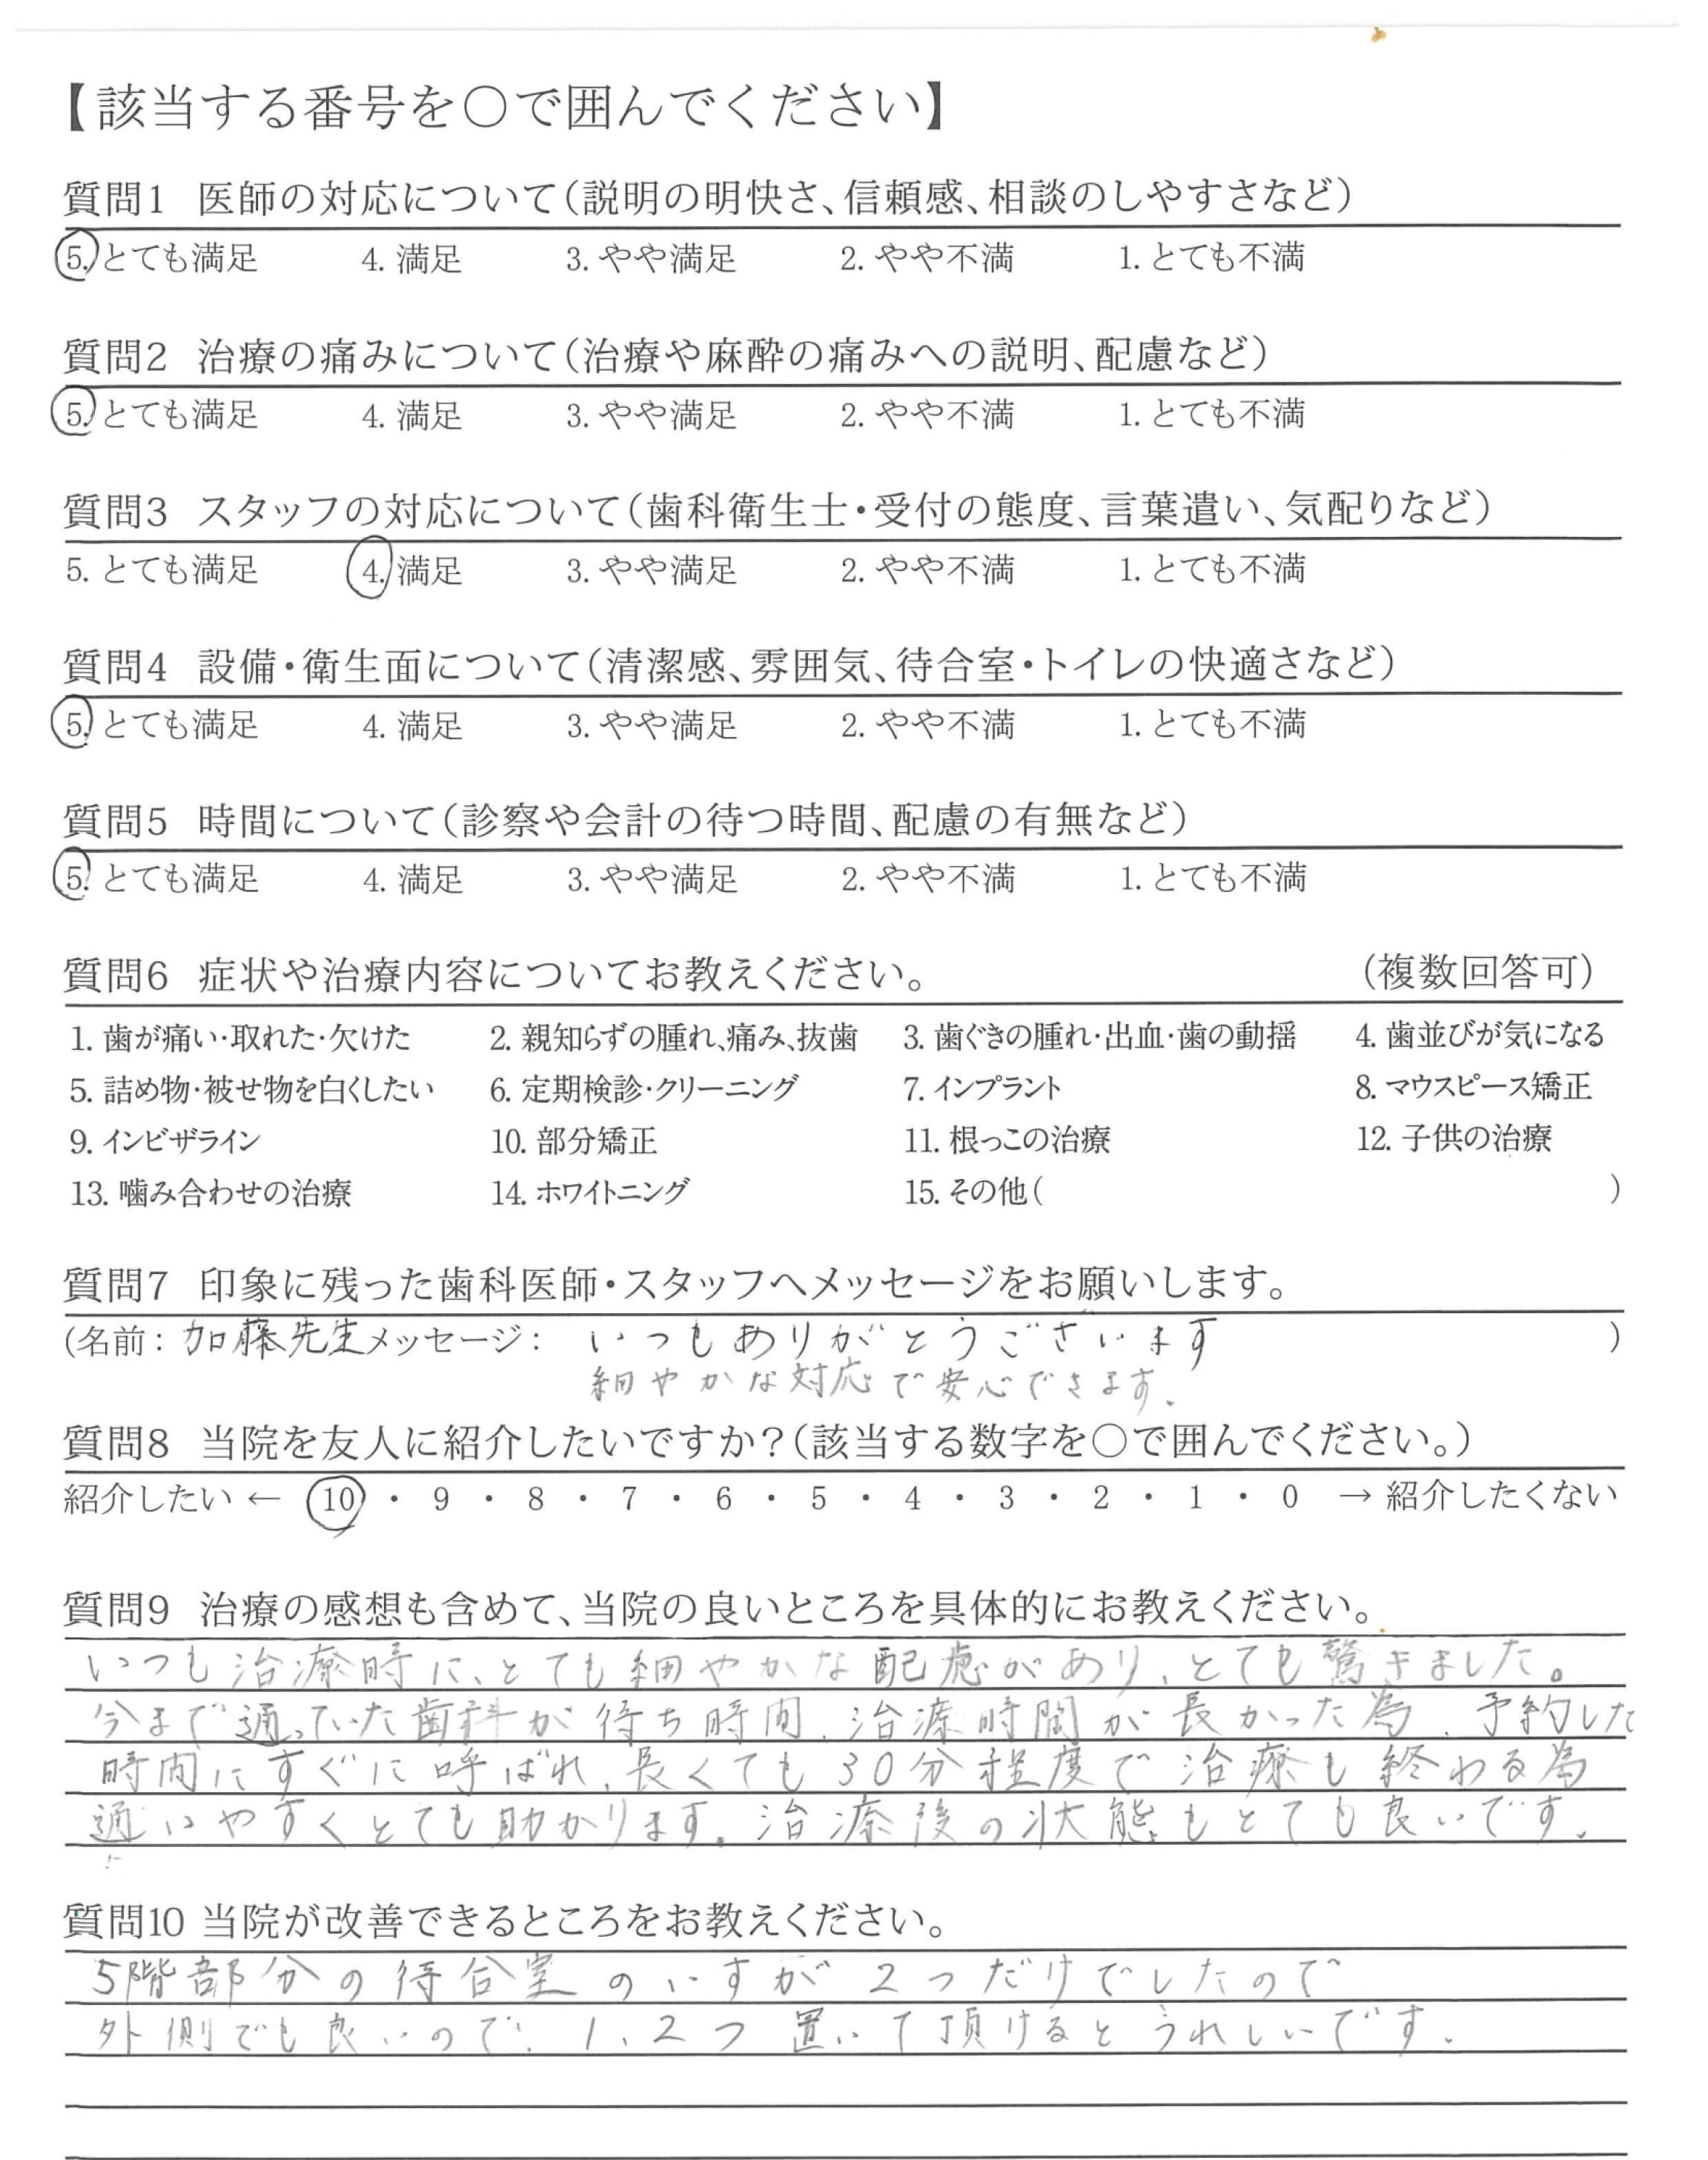 【該当する番号を〇で囲んでください】
質問1 医師の対応について(説明の明快さ、信頼感、相談のしやすさなど)
5. とても満足 4. 満足 3. やや満足 2. やや不満 1. とても不満
質問2 治療の痛みについて(治療や麻酔の痛みへの説明、配慮など)
5. とても満足 4. 満足 3. やや満足 2. やや不満 1. とても不満
質問3 スタッフの対応について(歯科衛生士・受付の態度、言葉遣い、気配りなど)
5. とても満足 4. 満足 3. やや満足 2. やや不満 1. とても不満
質問4 設備・衛生面について(清潔感、雰囲気、待合室・トイレの快適さなど)
5. とても満足 4. 満足 3. やや満足 2. やや不満 1. とても不満
質問5 時間について(診察や会計の待つ時間、配慮の有無など)
5. とても満足 4. 満足 3. やや満足 2. やや不満 1. とても不満
質問6 症状や治療内容についてお教えください。 (複数回答可)
1. 歯が痛い・取れた・欠けた 2. 親知らずの腫れ、痛み、抜歯 3. 歯ぐきの腫れ・出血・歯の動揺 4. 歯並びが気になる
5. 詰め物・被せ物を白くしたい 6. 定期検診・クリーニング 7. インプラント 8. マウスピース矯正
9. インビザライン 10. 部分矯正 11. 根っこの治療 12. 子供の治療
13. 噛み合わせの治療 14. ホワイトニング 15. その他( )
質問7 印象に残った歯科医師・スタッフへメッセージをお願いします。
(名前: 加藤先生 メッセージ: いつもありがとうございます )
細やかな対応で安心できます。
質問8 当院を友人に紹介したいですか?(該当する数字を〇で囲んでください。)
紹介したい ← 10 ・ 9 ・ 8 ・ 7 ・ 6 ・ 5 ・ 4 ・ 3 ・ 2 ・ 1 ・ 0 → 紹介したくない
質問9 治療の感想も含めて、当院の良いところを具体的にお教えください。
いつも治療時に、とても細やかな配慮があり、とても驚きました。
今まで通っていた歯科が待ち時間、治療時間が長かった為、予約した
時間にすぐに呼ばれ、長くても30分程度で治療も終わる為
通いやすくとても助かります。治療後の状態もとても良いです。
質問10 当院が改善できるところをお教えください。
5階部分の待合室のいすが2つだけでしたので
外側でも良いので、1、2つ置いて頂けるとうれしいです。